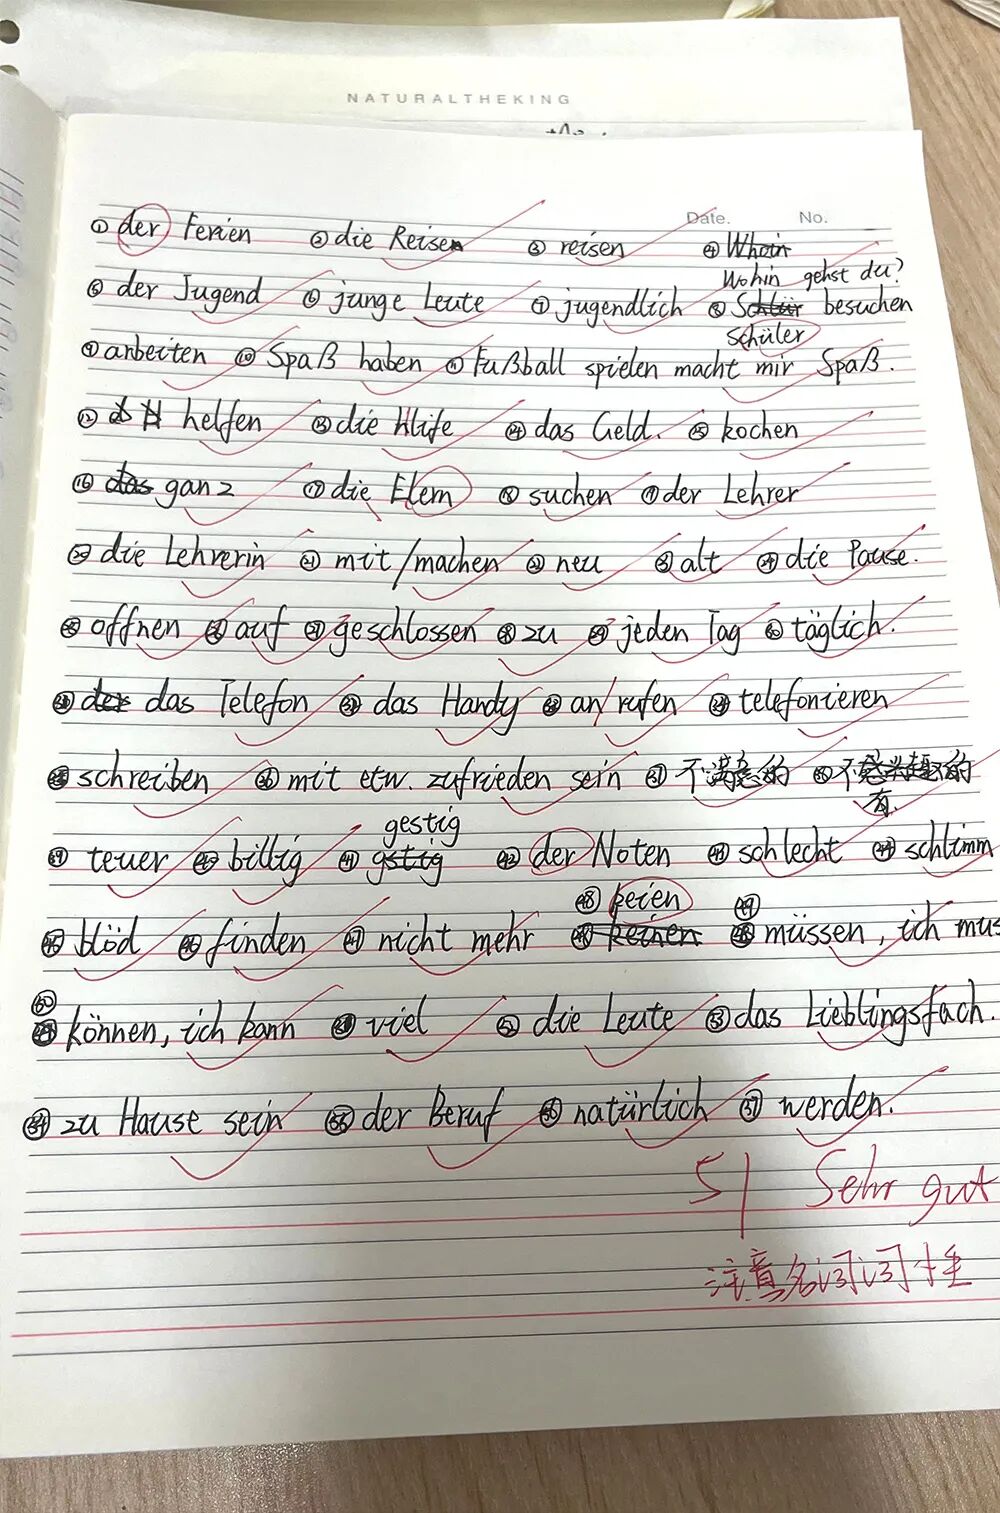 NATURALTHEKING
Date. No.
① der Ferien ② die Reise ③ reisen ④
Wohin gehst du?
⑤ der Jugend ⑥ junge Leute ⑦ jugendlich ⑧ besuchen
Schüler
⑨ arbeiten ⑩ Spaß haben ⑪ Fußball spielen macht mir Spaß.
⑫ helfen ⑬ die Hlife ⑭ das Geld. ⑮ kochen
⑯ ganz ⑰ die Elern ⑱ suchen ⑲ der Lehrer
⑳ die Lehrerin ㉑ mit/machen ㉒ neu ㉓ alt ㉔ die Pause.
㉕ offnen ㉖ auf ㉗ geschlossen ㉘ zu ㉙ jeden Tag ㉚ täglich.
㉛ das Telefon ㉜ das Handy ㉝ an/rufen ㉞ telefonieren
㉟ schreiben ㊱ mit etw. zufrieden sein ㊲ 不满意的 ㊳ 不感兴趣的
有.
gestig
㊴ teuer ㊵ billig ㊶ ㊷ der Noten ㊸ schlecht ㊹ schlimm
㊽ keien ㊾
㊺ blöd ㊻ finden ㊼ nicht mehr müssen, ich mus
㊿
können, ich kann viel 52 die Leute 53 das Lieblingsfach.
54 zu Hause sein 55 der Beruf 56 natürlich 57 werden.
51 Sehr gut
注意名词词性